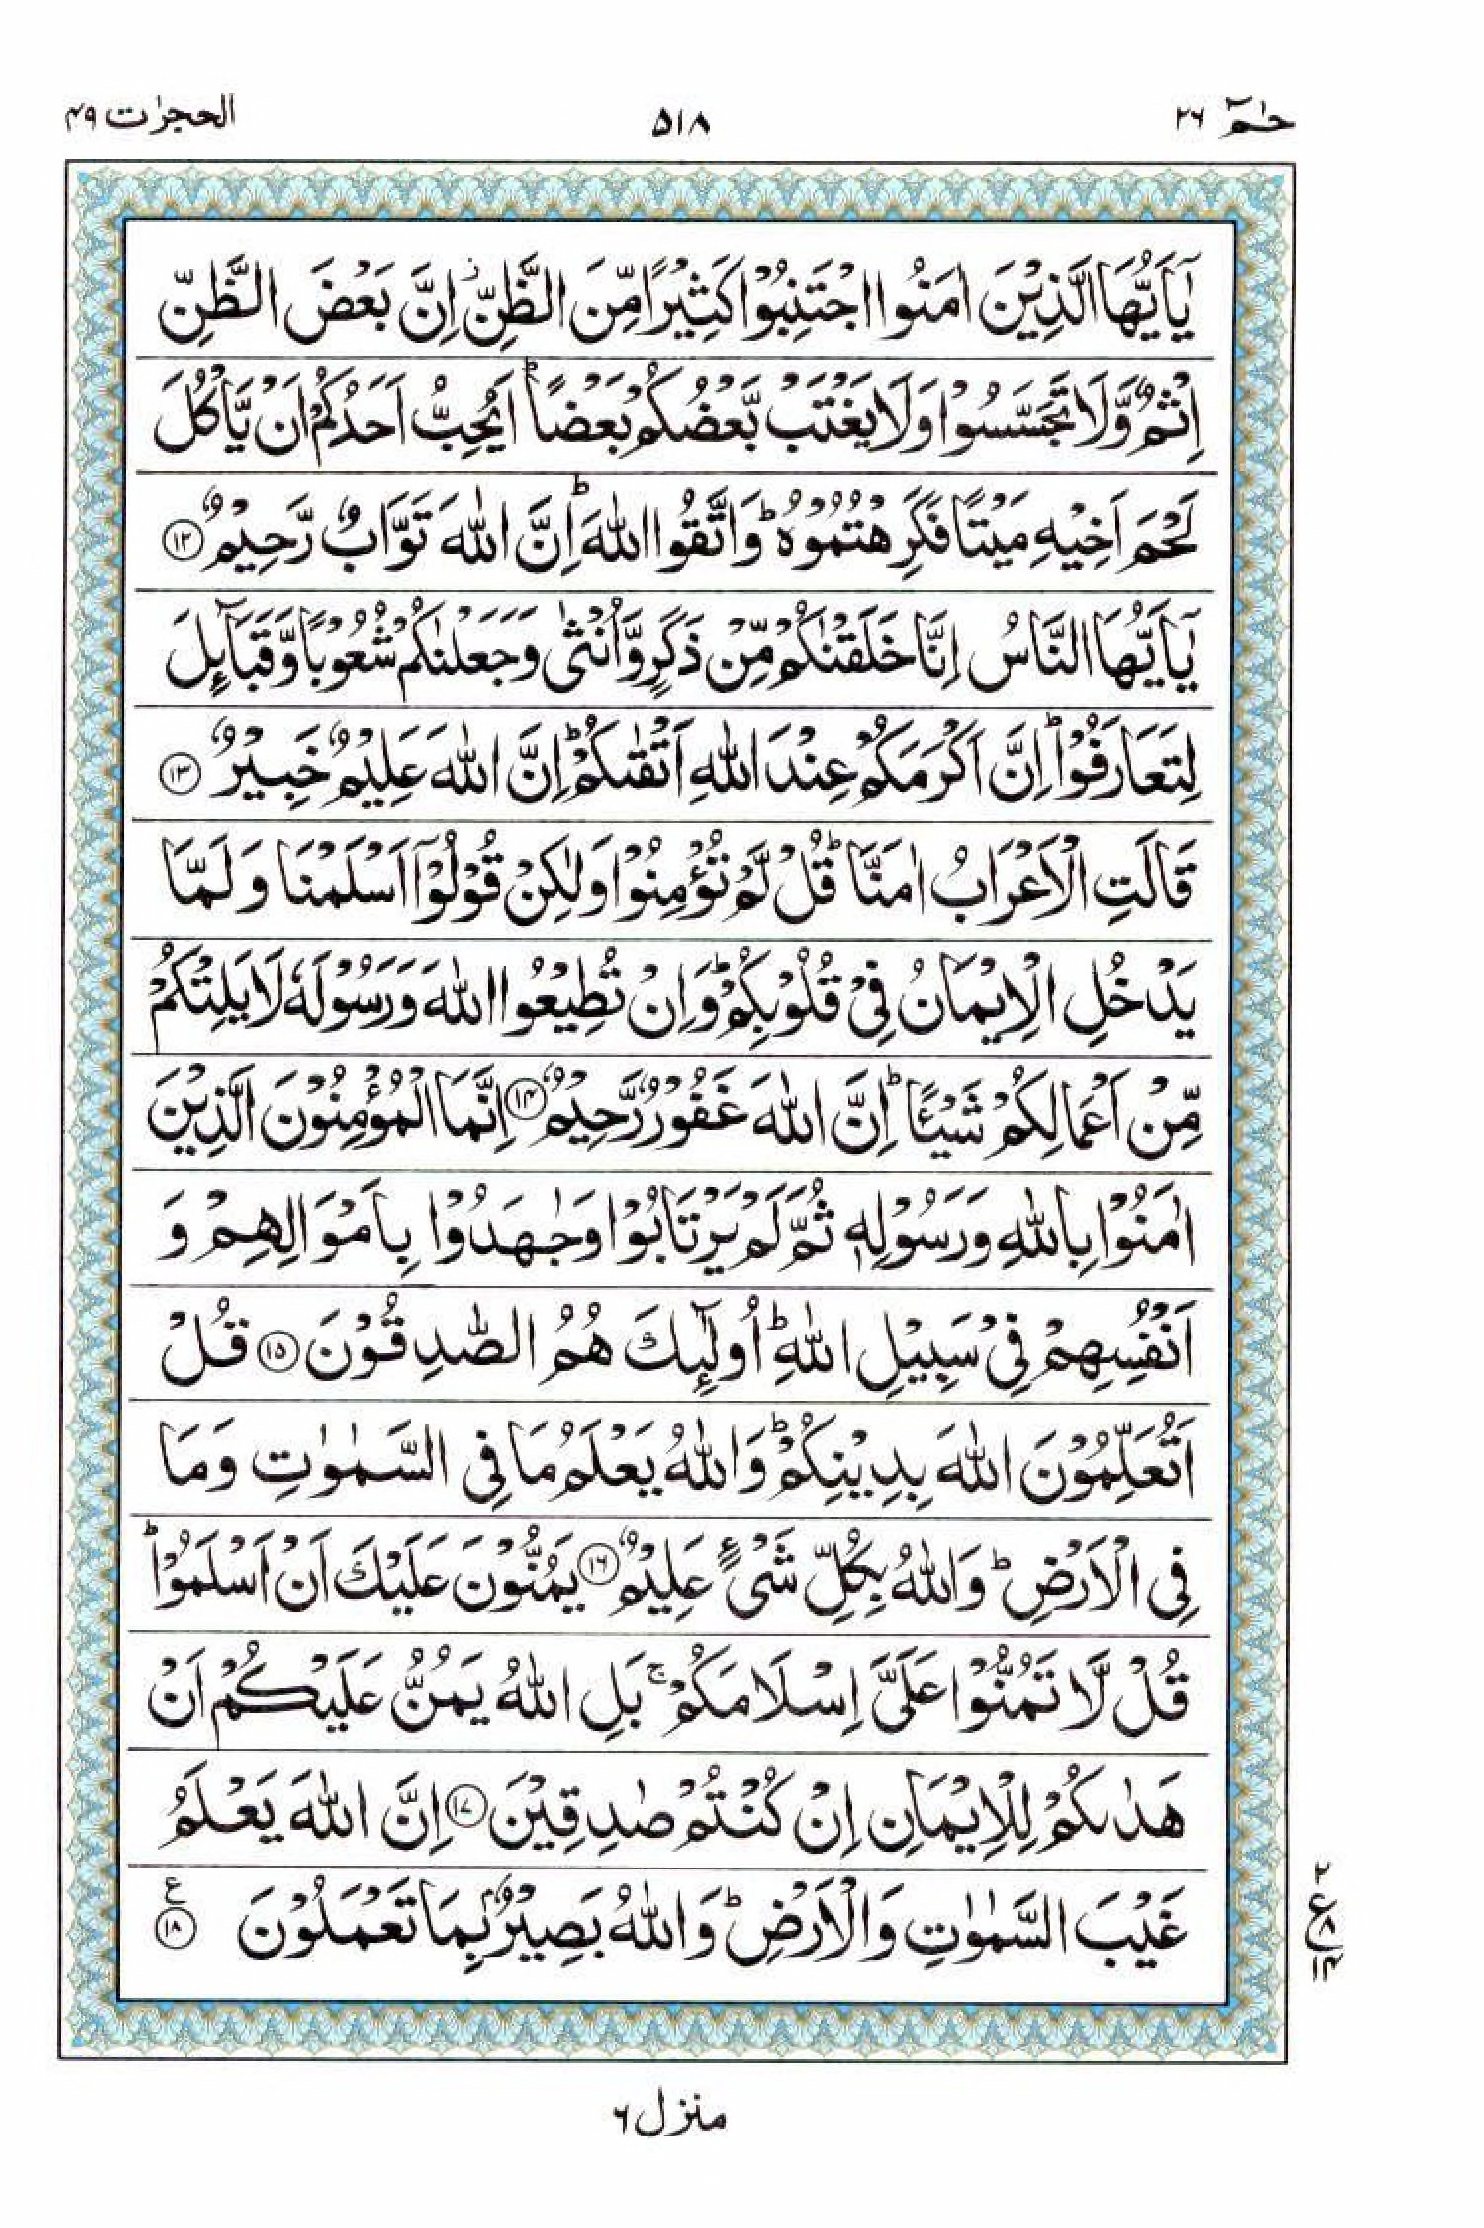 حٰمٓ ٢٦
٥١٨
الحجرٰت ٤٩
يٰۤاَيُّهَا الَّذِيْنَ اٰمَنُوا اجْتَنِبُوْا كَثِيْرًا مِّنَ الظَّنِّ ؗ اِنَّ بَعْضَ الظَّنِّ
اِثْمٌ وَّلَا تَجَسَّسُوْا وَلَا يَغْتَبْ بَّعْضُكُمْ بَعْضًا ؕ اَيُحِبُّ اَحَدُكُمْ اَنْ يَّاْكُلَ
لَحْمَ اَخِيْهِ مَيْتًا فَكَرِهْتُمُوْهُ ؕ وَاتَّقُوا اللّٰهَ ؕ اِنَّ اللّٰهَ تَوَّابٌ رَّحِيْمٌ ﴿١٢﴾
يٰۤاَيُّهَا النَّاسُ اِنَّا خَلَقْنٰكُمْ مِّنْ ذَكَرٍ وَّاُنْثٰى وَجَعَلْنٰكُمْ شُعُوْبًا وَّقَبَآئِلَ
لِتَعَارَفُوْا ؕ اِنَّ اَكْرَمَكُمْ عِنْدَ اللّٰهِ اَتْقٰىكُمْ ؕ اِنَّ اللّٰهَ عَلِيْمٌ خَبِيْرٌ ﴿١٣﴾
قَالَتِ الْاَعْرَابُ اٰمَنَّا ؕ قُلْ لَّمْ تُؤْمِنُوْا وَلٰكِنْ قُوْلُوْۤا اَسْلَمْنَا وَلَمَّا
يَدْخُلِ الْاِيْمَانُ فِيْ قُلُوْبِكُمْ ؕ وَاِنْ تُطِيْعُوا اللّٰهَ وَرَسُوْلَهٗ لَا يَلِتْكُمْ
مِّنْ اَعْمَالِكُمْ شَيْـًٔا ؕ اِنَّ اللّٰهَ غَفُوْرٌ رَّحِيْمٌ ﴿١٤﴾ اِنَّمَا الْمُؤْمِنُوْنَ الَّذِيْنَ
اٰمَنُوْا بِاللّٰهِ وَرَسُوْلِهٖ ثُمَّ لَمْ يَرْتَابُوْا وَجٰهَدُوْا بِاَمْوَالِهِمْ وَ
اَنْفُسِهِمْ فِيْ سَبِيْلِ اللّٰهِ ؕ اُولٰٓئِكَ هُمُ الصّٰدِقُوْنَ ﴿١٥﴾ قُلْ
اَتُعَلِّمُوْنَ اللّٰهَ بِدِيْنِكُمْ ؕ وَاللّٰهُ يَعْلَمُ مَا فِي السَّمٰوٰتِ وَمَا
فِي الْاَرْضِ ؕ وَاللّٰهُ بِكُلِّ شَيْءٍ عَلِيْمٌ ﴿١٦﴾ يَمُنُّوْنَ عَلَيْكَ اَنْ اَسْلَمُوْا ؕ
قُلْ لَّا تَمُنُّوْا عَلَيَّ اِسْلَامَكُمْ ۚ بَلِ اللّٰهُ يَمُنُّ عَلَيْكُمْ اَنْ
هَدٰىكُمْ لِلْاِيْمَانِ اِنْ كُنْتُمْ صٰدِقِيْنَ ﴿١٧﴾ اِنَّ اللّٰهَ يَعْلَمُ
غَيْبَ السَّمٰوٰتِ وَالْاَرْضِ ؕ وَاللّٰهُ بَصِيْرٌۢ بِمَا تَعْمَلُوْنَ ﴿١٨﴾ ع
٢
ع ٨
١٤
منزل ٦